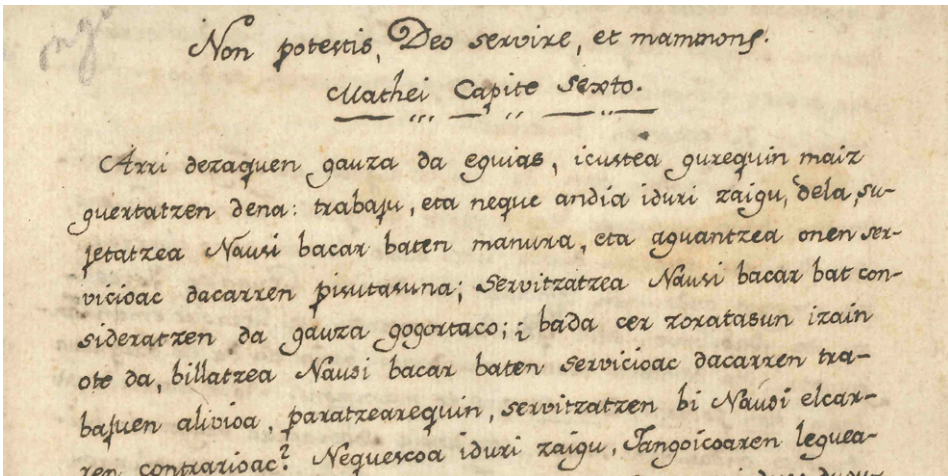 Non potestis, Deo servire, et mammone.
Mathei Capite Sexto.
Arri dezaquen gauza da eguias, icustea gurequin maiz
guertatzen dena: trabaju, eta neque andia iduri zaigu, dela, su-
jetatzea Nausi bacar baten manura, eta aguantzea onen ser-
vicioac dacarren pisutasuna; servitzatzea Nausi bacar bat con-
sideratzen da gauza gogortaco; ¿ bada cer zoratasun izain
ote da, billatzea Nausi bacar baten servicioac dacarren tra-
bajuen alivioa, paratzearequin, servitzatzen bi Nausi elcar-
ren contrarioac? Nequescoa iduri zaigu, Jangoicoaren leguea-